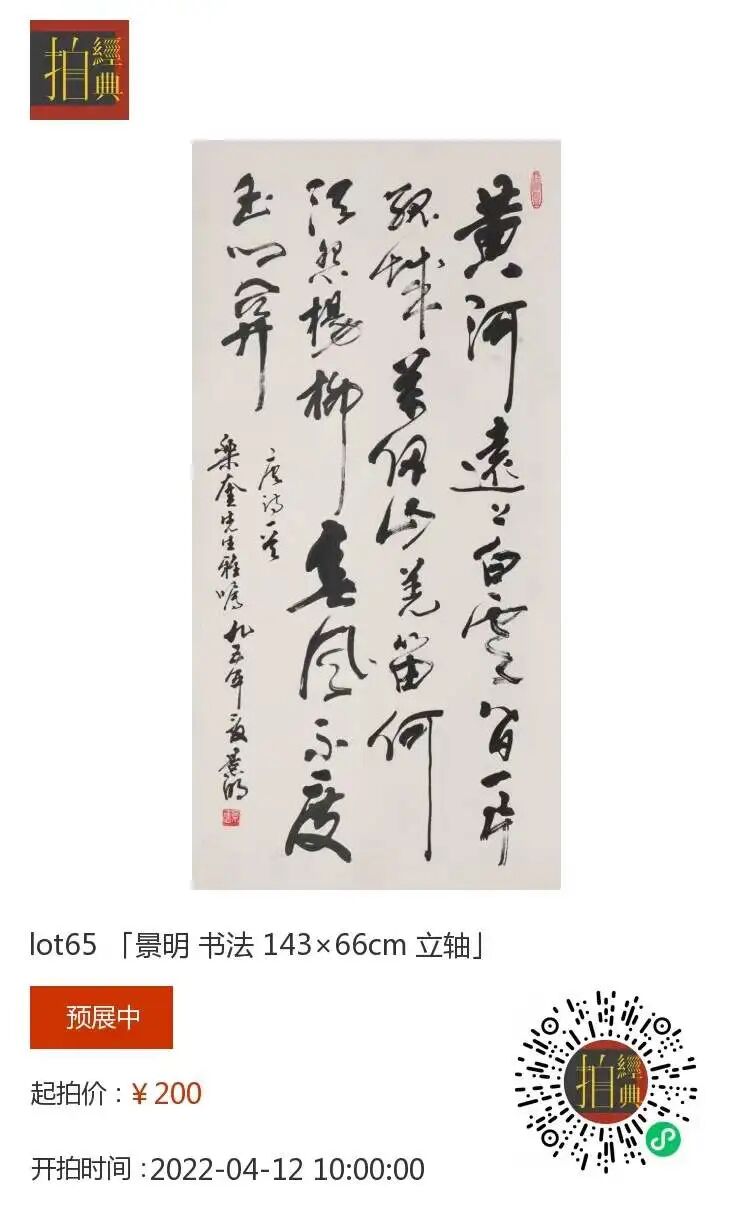 拍經典
黄河遠上白雲间一片
孤城萬仞山羌笛何
须怨楊柳春風不度
玉门関
唐诗一首
樂奎先生雅嘱 九五年夏 景明
lot65 「景明 书法 143×66cm 立轴」
预展中
起拍价：¥ 200
开拍时间：2022-04-12 10:00:00
拍經典